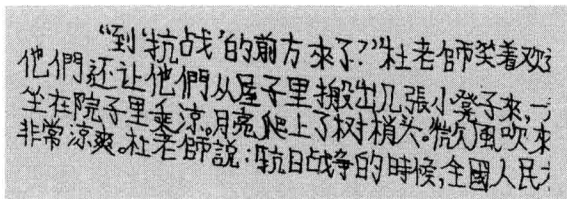 “到‘抗战’的前方來了?”杜老師笑着欢
他們还让他們从屋子里搬出几張小凳子來,一
坐在院子里乘凉。月亮爬上了树梢头。微風吹來
非常涼爽。杜老師説:“抗日战争的時候,全國人民